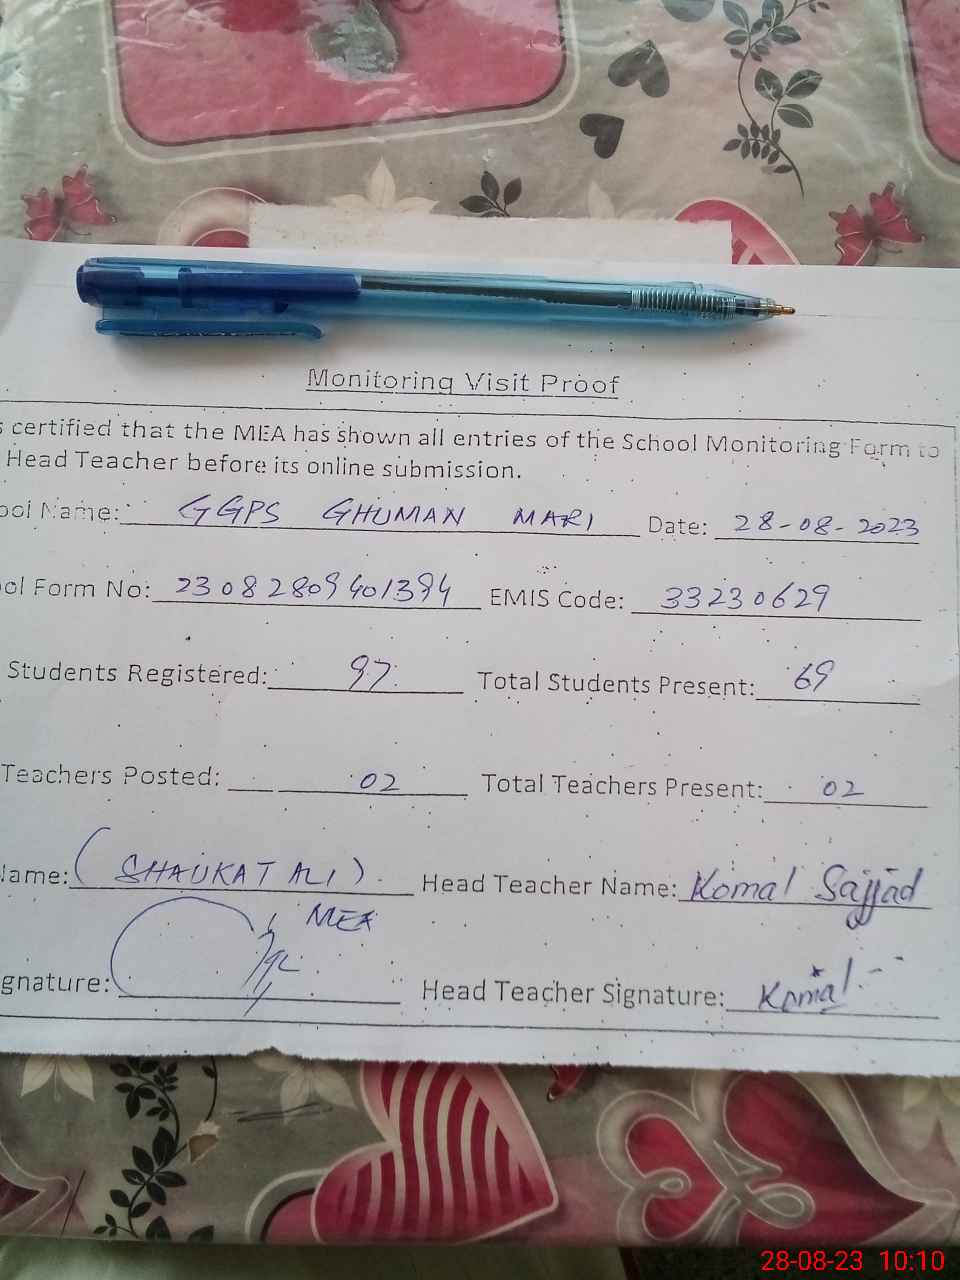 Monitoring Visit Proof
s certified that the MEA has shown all entries of the School Monitoring Form to
Head Teacher before its online submission.
ool Name: GGPS GHUMAN MARI Date: 28-08-2023
ol Form No: 23082809401394 EMIS Code: 33230629
Students Registered: 97 Total Students Present: 69
Teachers Posted: 02 Total Teachers Present: 02
Name: (SHAUKAT ALI) Head Teacher Name: Komal Sajjad
MEA
gnature: Head Teacher Signature: Komal
28-08-23 10:10